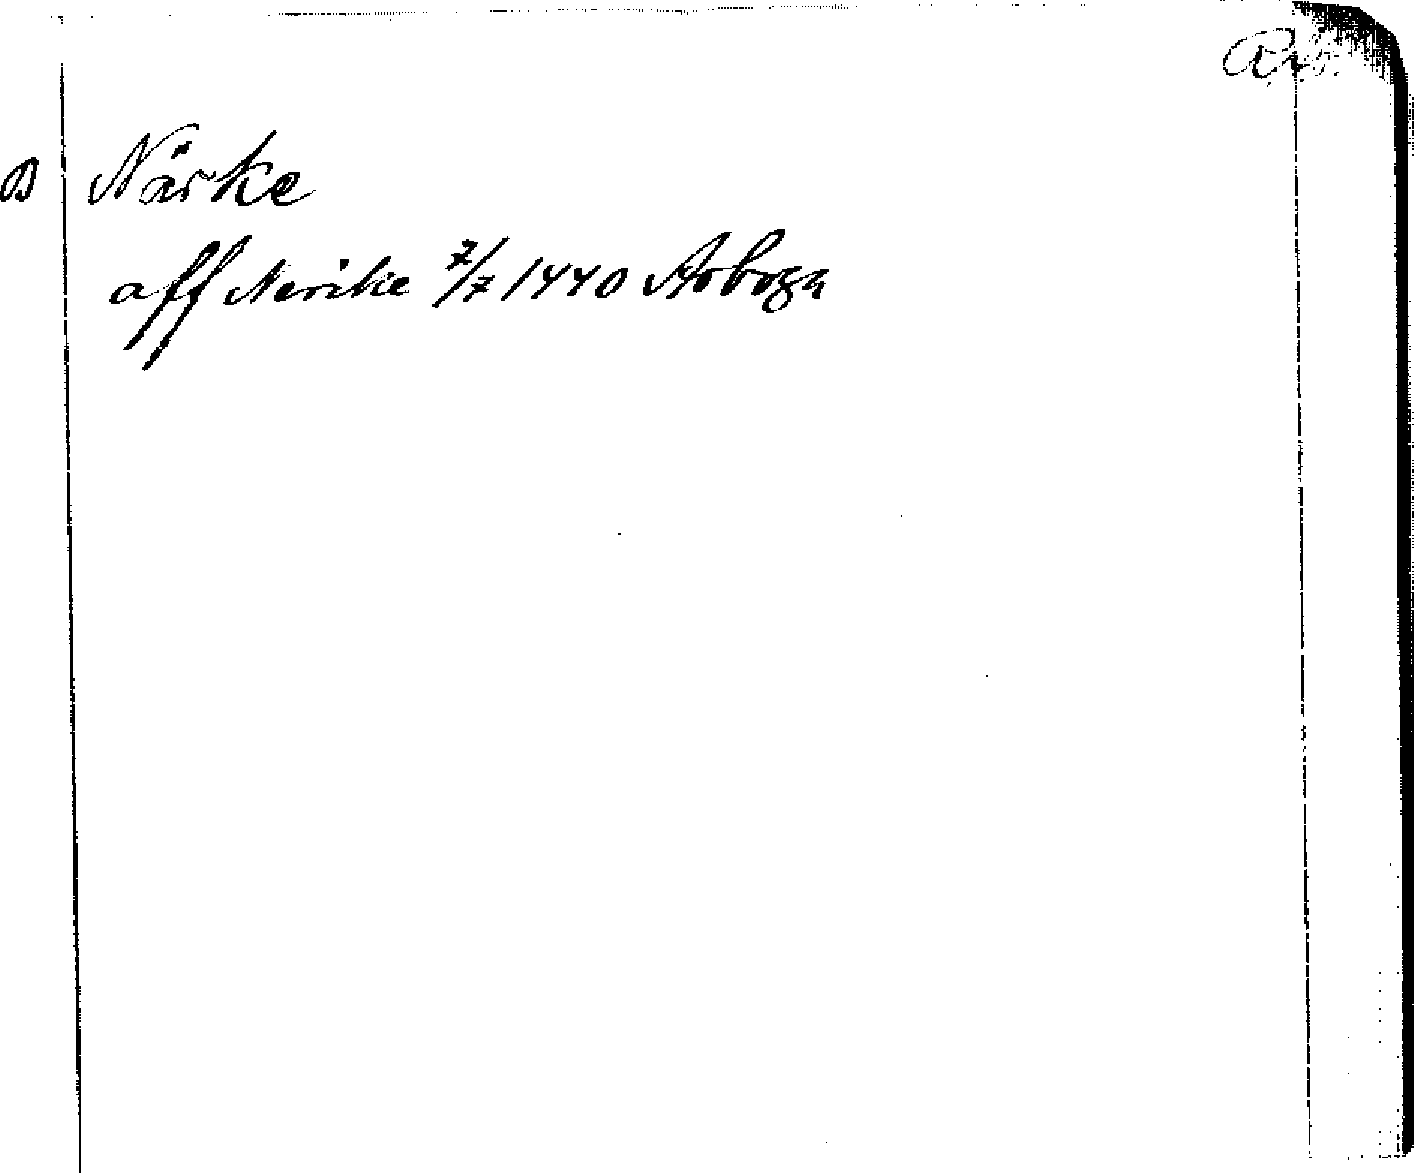 Närke
aff Nerike 7/7 1440 Arboga